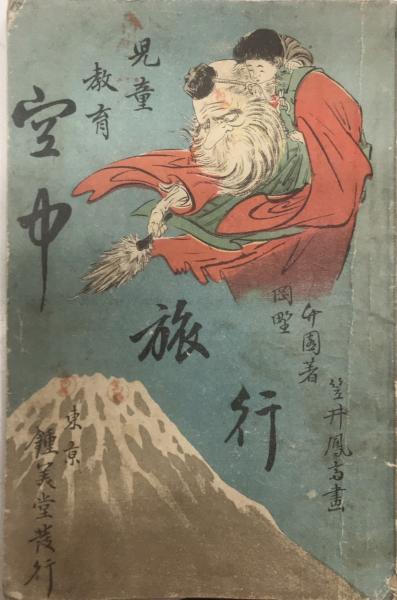 児童
教育
空中
旅行
岡野
竹園著
笠井鳳斎画
東京
鍾美堂發行